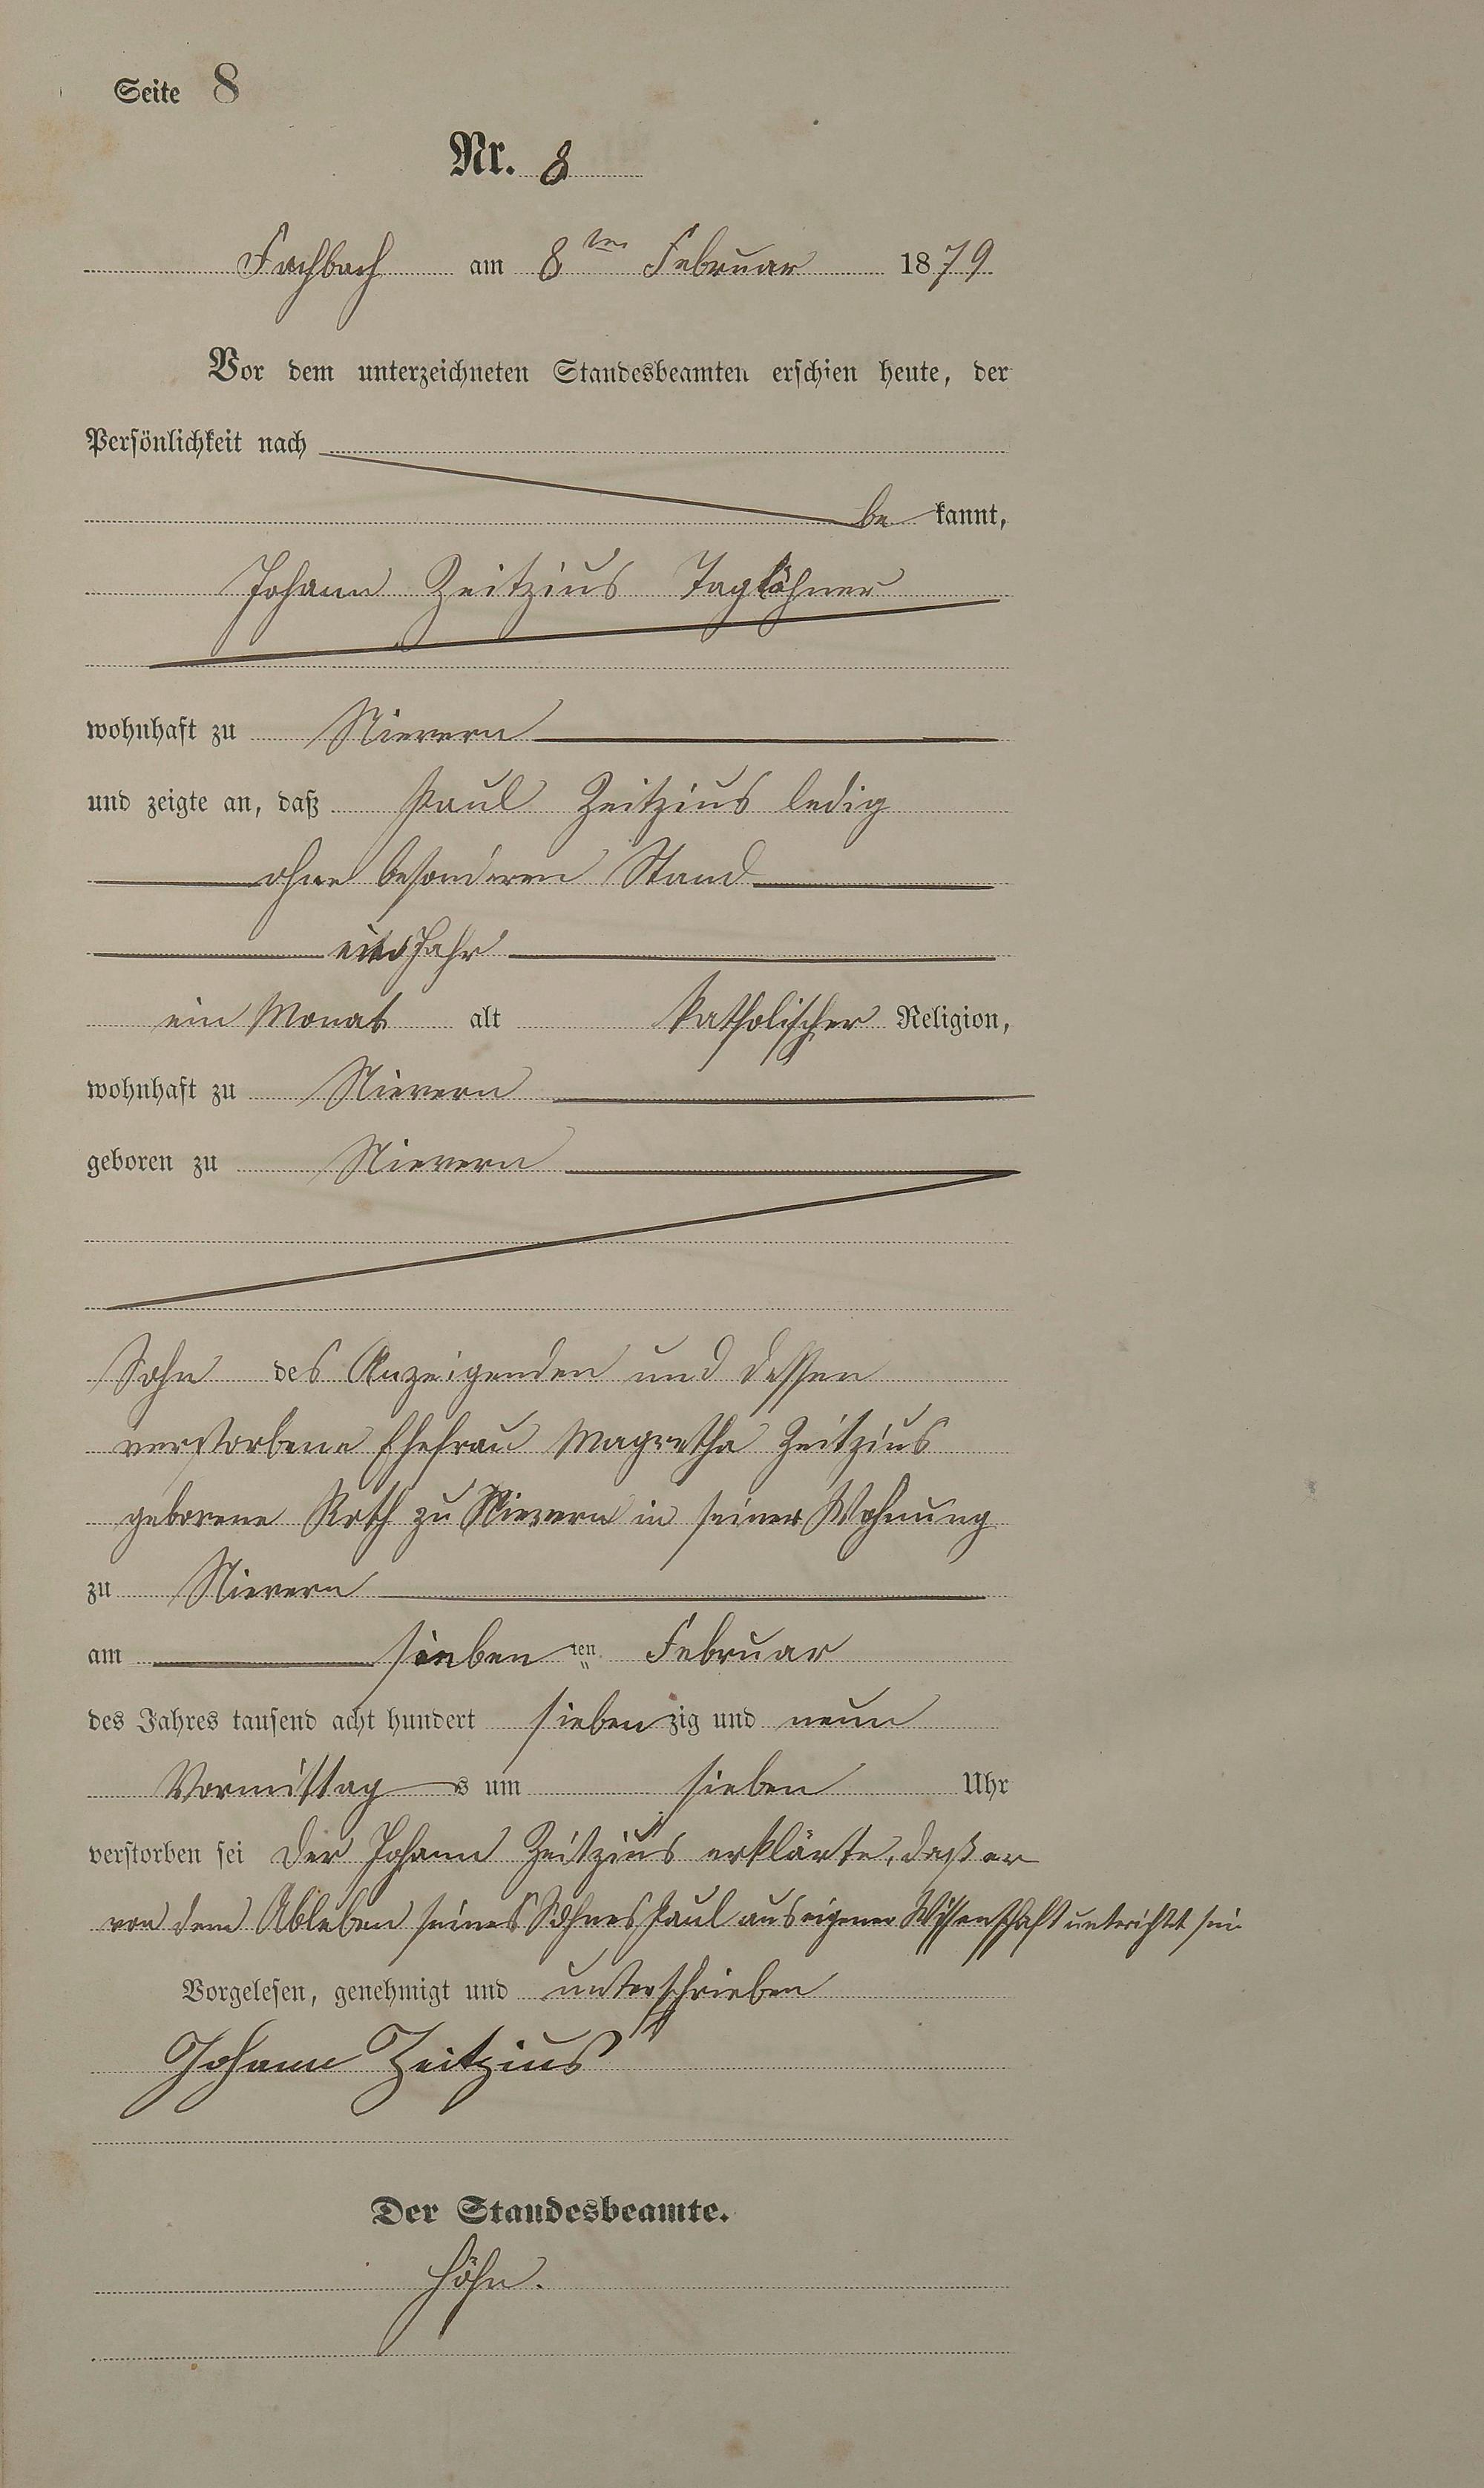 Seite 8
Nr. 8
Fachbach am 8ten Februar 1879.
Vor dem unterzeichneten Standesbeamten erschien heute, der
Persönlichkeit nach
be kannt,
Johann Zeitzius Taglöhner
wohnhaft zu Nievern
und zeigte an, daß Paul Zeitzius ledig
ohne besonderen Stand
Jahr
ein Monat alt katholischer Religion,
wohnhaft zu Nievern
geboren zu Nievern
Sohn des Anzeigenden und dessen
verstorbene Ehefrau Magretha Zeitzius
geborene Roth zu Nievern in seiner Wohnung
zu Nievern
am sieben ten Februar
des Jahres tausend acht hundert sieben zig und neun
Vormittag s um sieben Uhr
verstorben sei Der Johann Zeitzius erklärte, daß er
von dem Ableben seines Sohnes Paul aus eigener Wissenschaft unterichtet sei
Vorgelesen, genehmigt und unterschrieben
Johann Zeitzius
Der Standesbeamte.
Höhn.